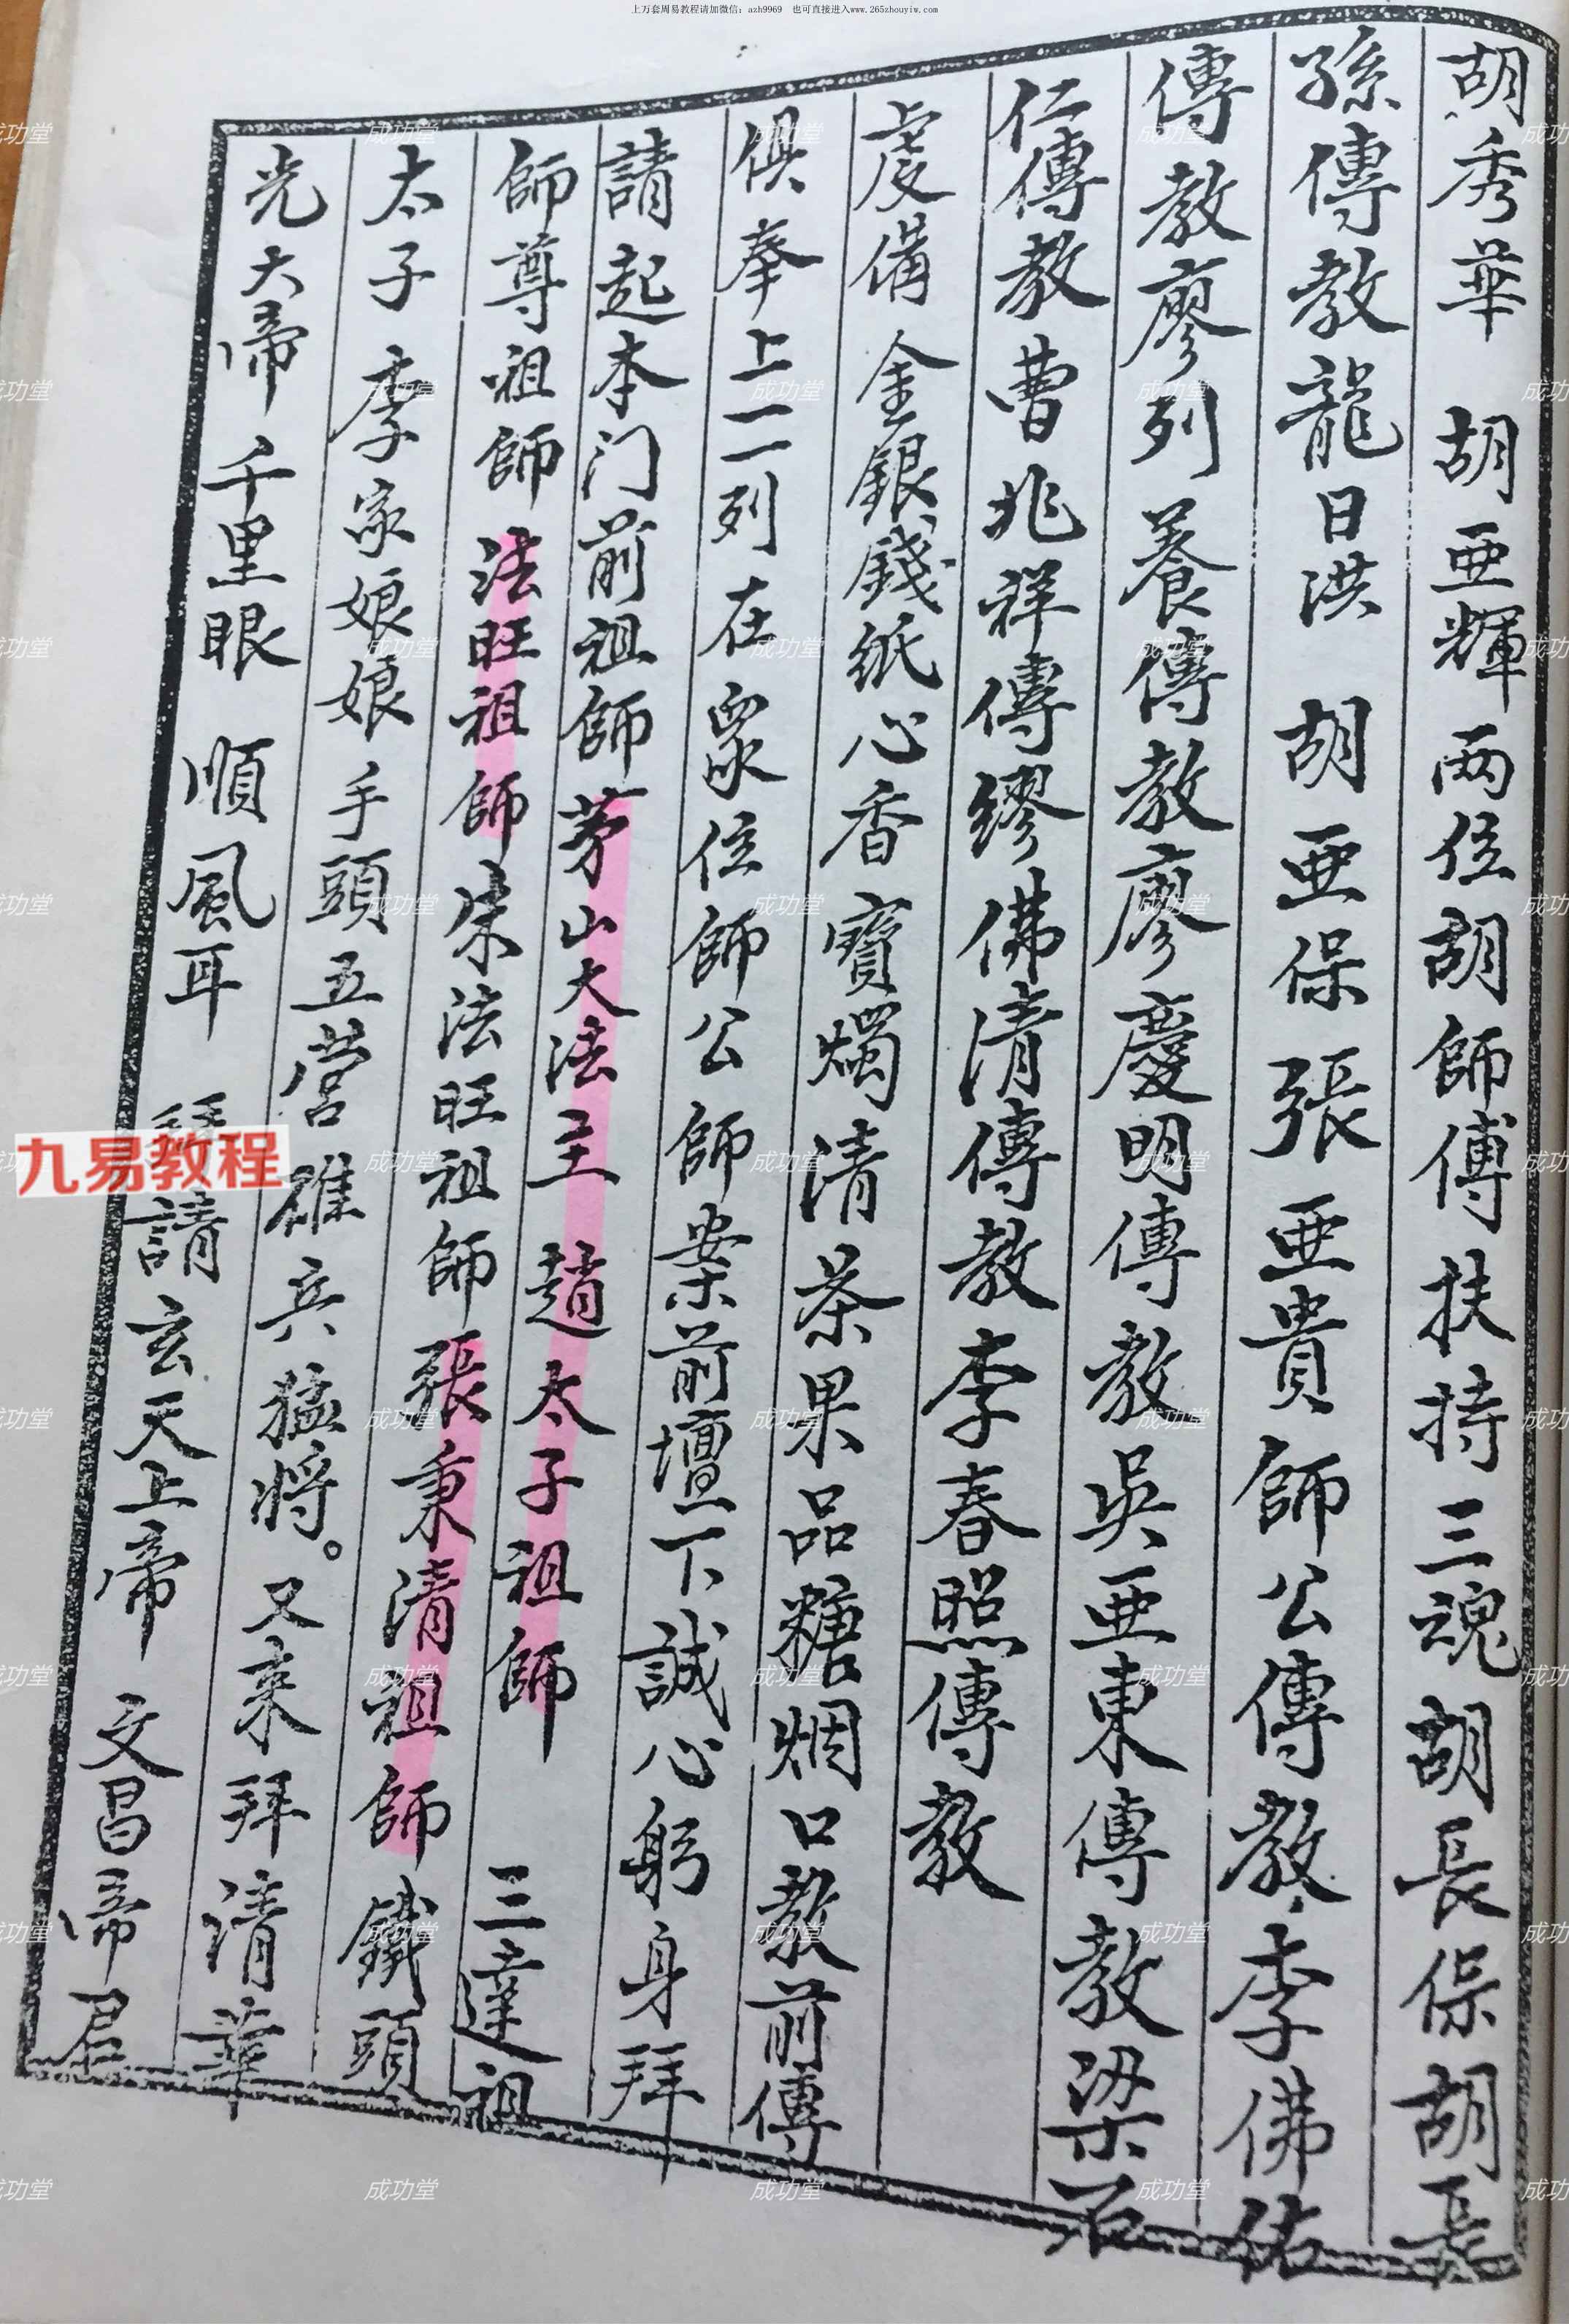 上万套周易教程请加微信：azh9969　也可直接进入www.265zhouyiw.com
胡秀華　胡亜輝两位胡師傅扶持三魂胡長保胡長
孫傳教龍日洪　胡亜保張亜貴師公傳教李佛佑
傳教廖列養傳教廖慶明傳教吳亜東傳教梁石
仁傳教曹兆祥傳繆佛清傳教李春照傳教
虔備金銀錢紙心香寶燭清茶果品糖烟口教前傳
俱奉上二列在眾位師公師案前壇下誠心躬身拜
請起本门前祖師茅山大法主趙太子祖師　三達祖
師尊祖師法旺祖師朱法旺祖師張秉清祖師鐵頭
太子李家娘娘手頭五营雄兵猛将。又来拜清華
光大帝千里眼　順風耳　拜請玄天上帝　文昌帝君
九易教程
成功堂